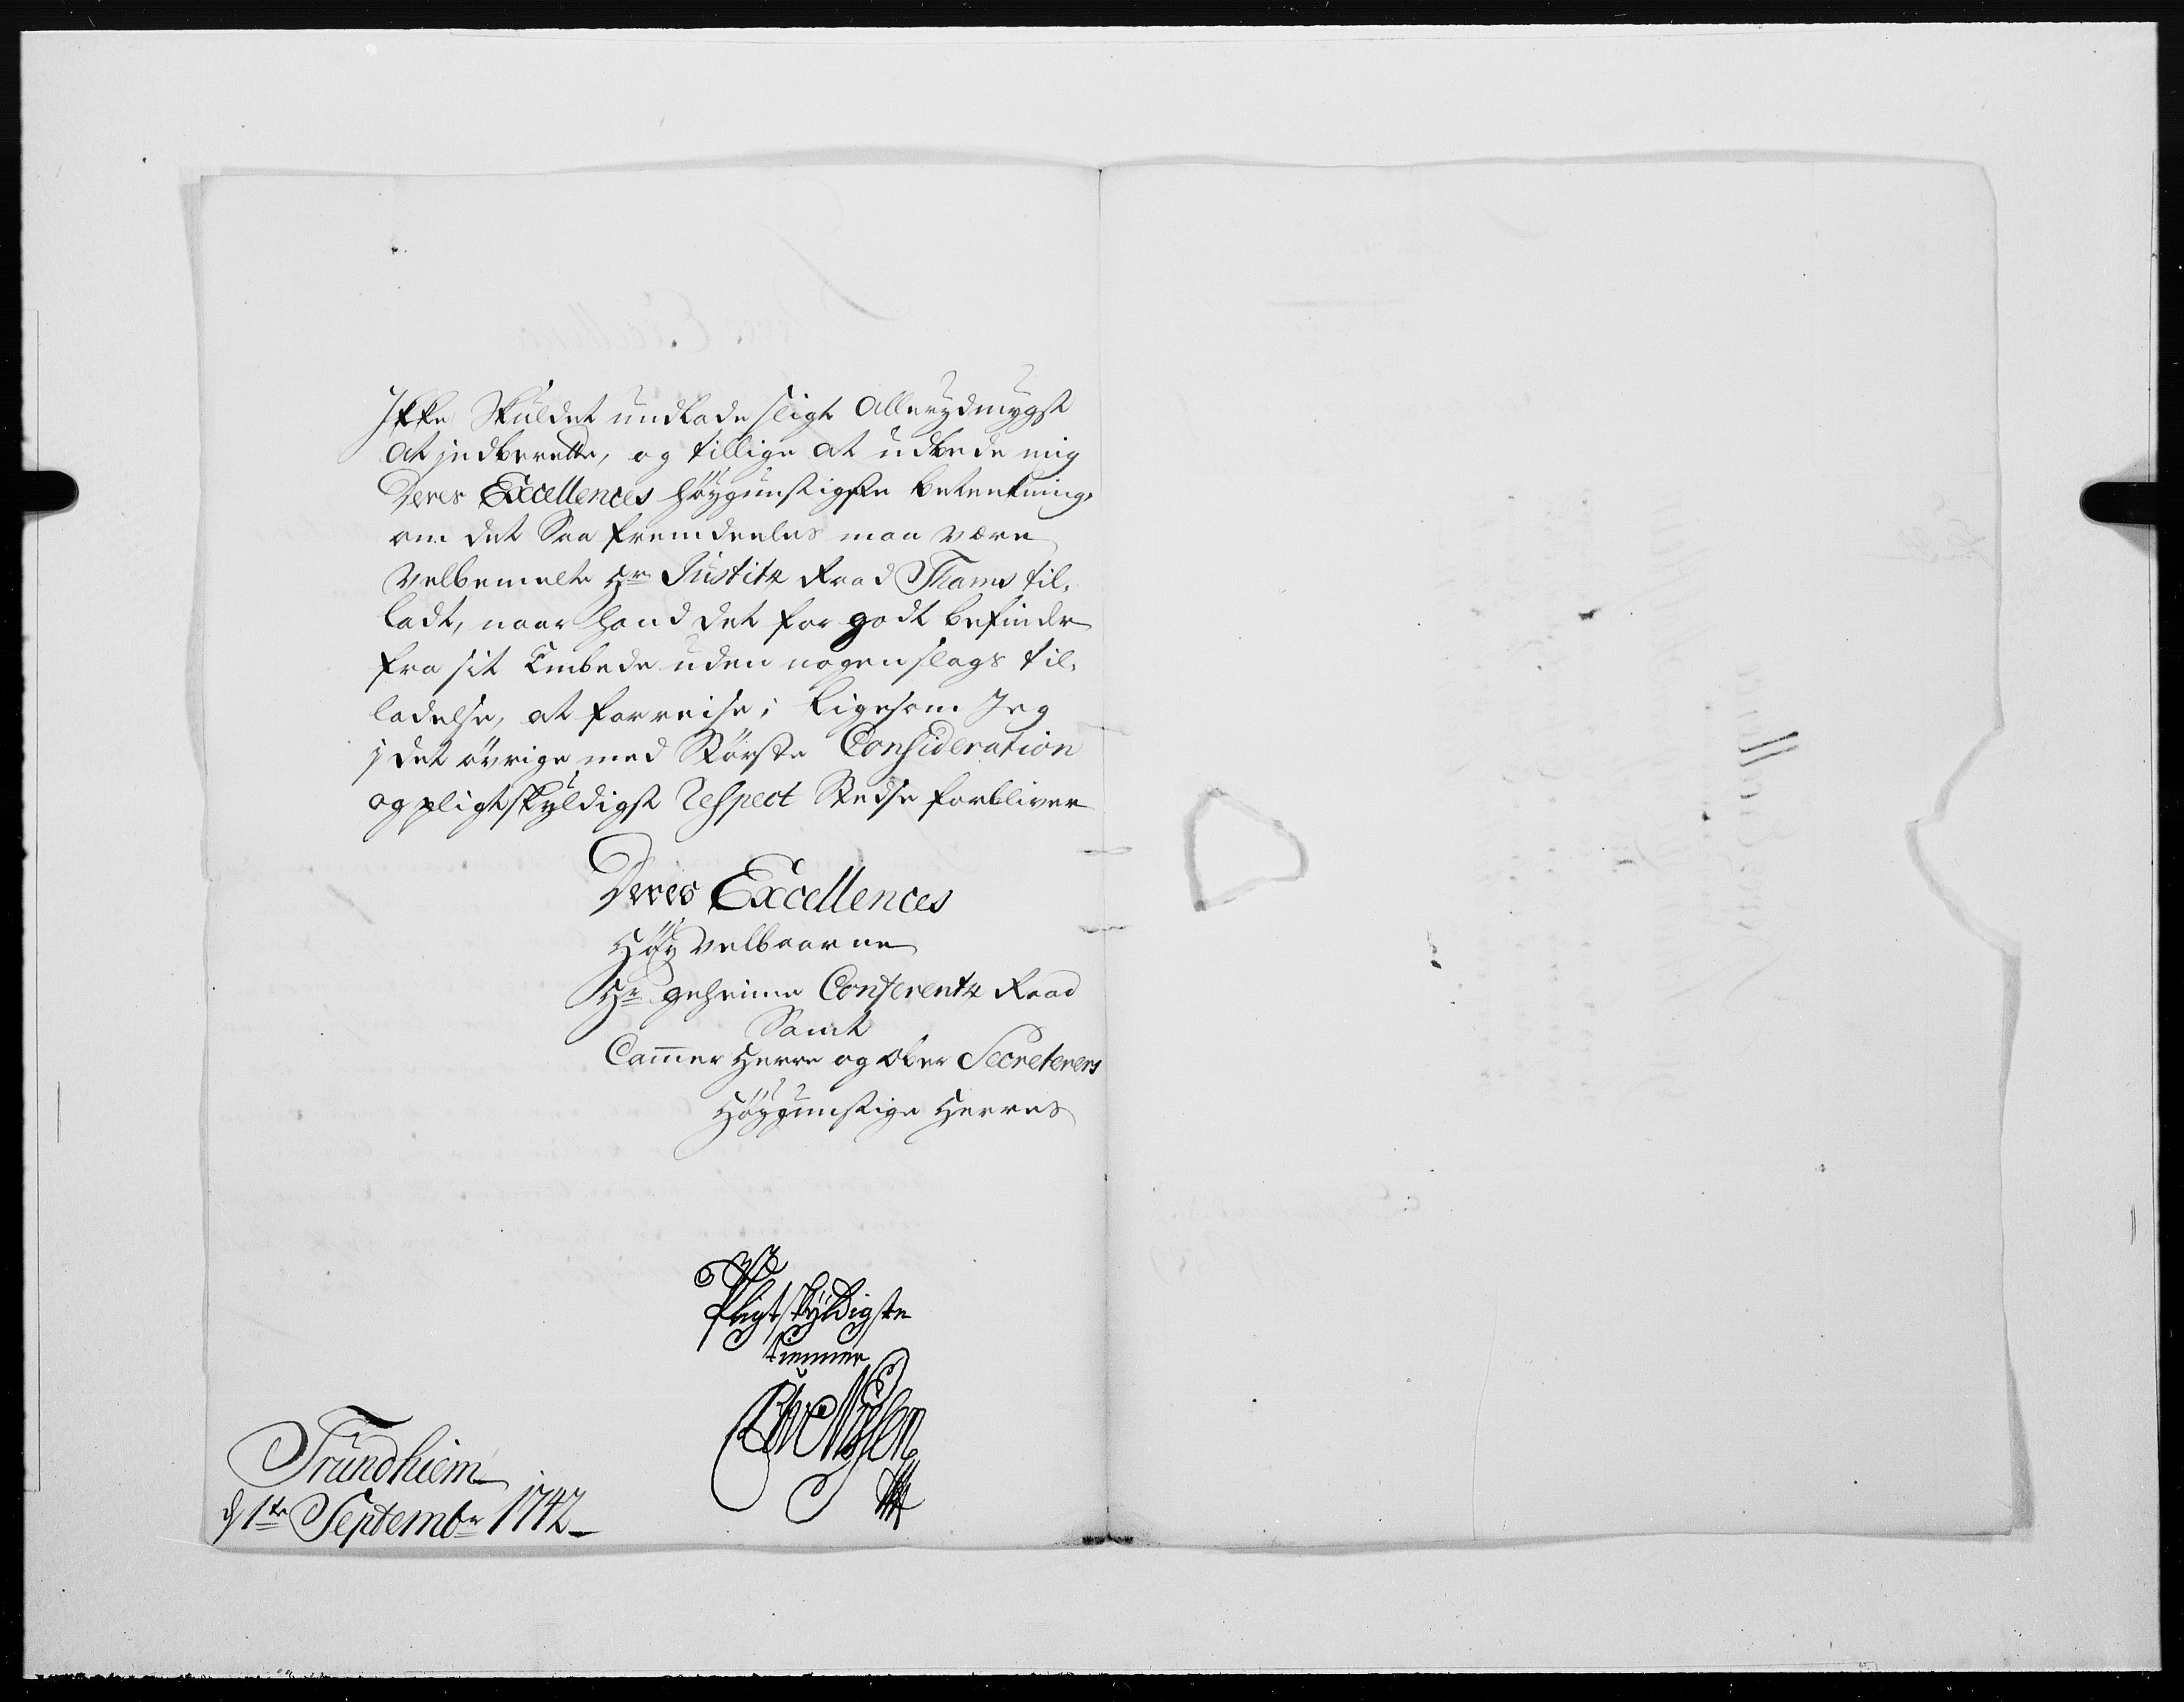 Ikke Skuldet undlade sligt Allerydmygst
at indberette, og tillige at udbede mig
Deres Excellences høygunstigste betenkning,
om det Saa fremdeeles maa være
Velbemelte Hr Justitz Raad Thams til,
ladt, naar hand det for godt befinder
fra sit Embede uden nogen slags til,
ladelse, at forreise; ligesom Jeg
j det øvrige med Største Consideration
og pligtskyldigst Respect Stedse forbliver
Deres Excellences
Høy Velbaarne
Hr geheime Conferentz Raad
Samt
Cammer Herre og Ober Secreterers
Høygunstige Herres
Pligtskyldigste
tienner
Nissen
Trundhiem
d 1te Septembr 1742